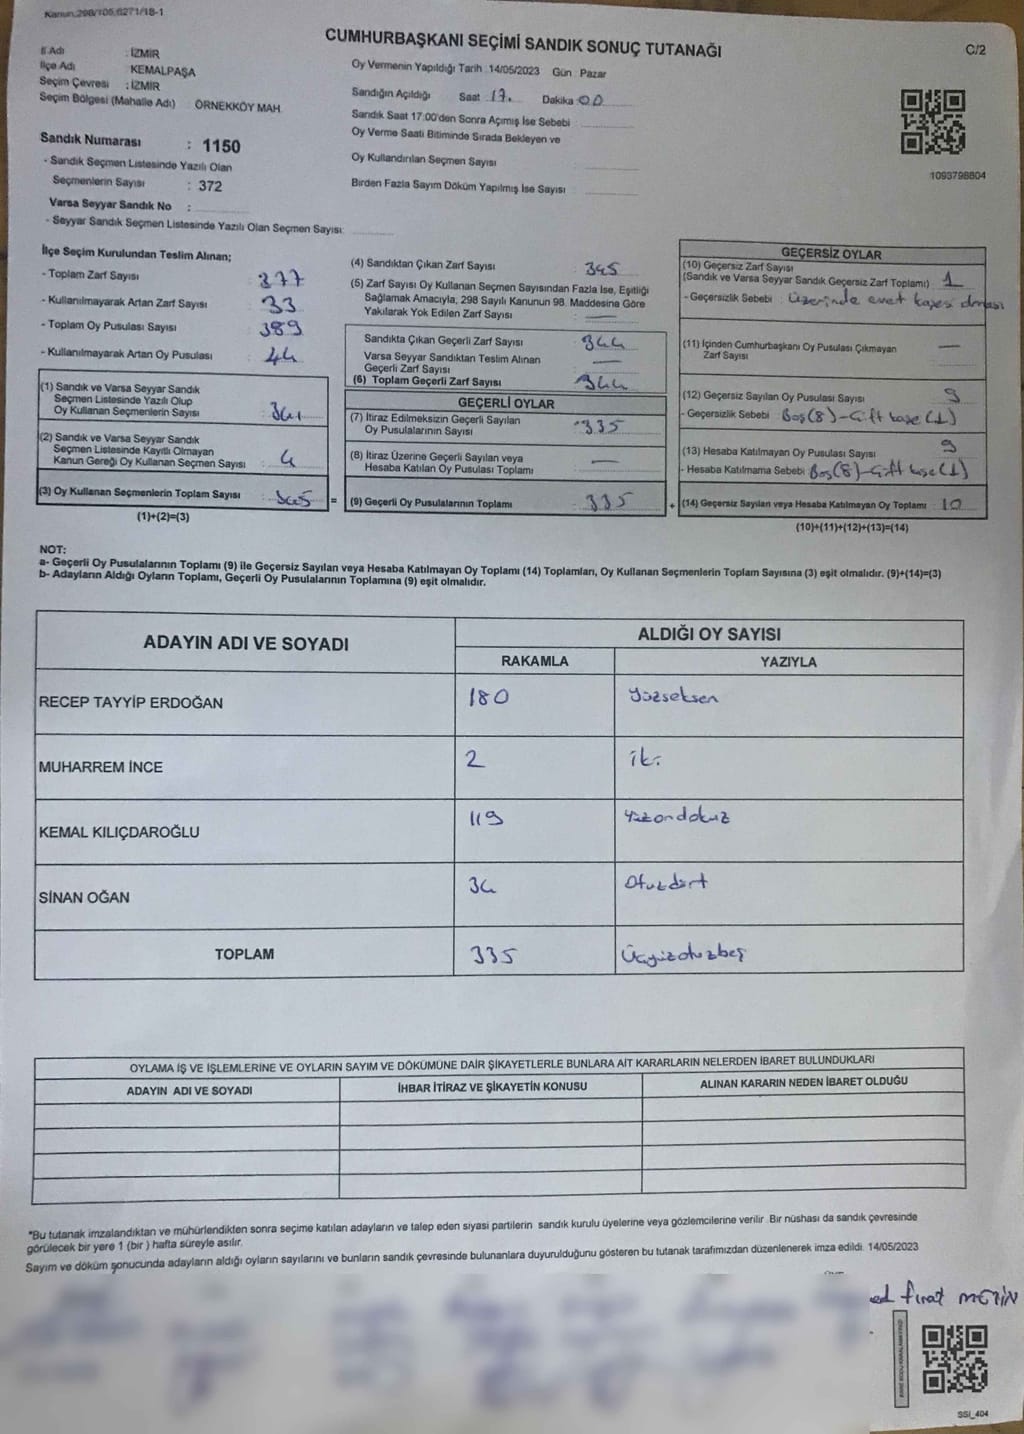 Kanun:298/105,6271/18-1
CUMHURBAŞKANI SEÇİMİ SANDIK SONUÇ TUTANAĞI
C/2
İl Adı : İZMİR
İlçe Adı : KEMALPAŞA
Seçim Çevresi : İZMİR
Seçim Bölgesi (Mahalle Adı) : ÖRNEKKÖY MAH.
Sandık Numarası : 1150
- Sandık Seçmen Listesinde Yazılı Olan
Seçmenlerin Sayısı : 372
Varsa Seyyar Sandık No :
- Seyyar Sandık Seçmen Listesinde Yazılı Olan Seçmen Sayısı:
Oy Vermenin Yapıldığı Tarih : 14/05/2023 Gün : Pazar
Sandığın Açıldığı Saat 17. Dakika 00
Sandık Saat 17:00'den Sonra Açımış İse Sebebi
Oy Verme Saati Bitiminde Sırada Bekleyen ve
Oy Kullandırılan Seçmen Sayısı
Birden Fazla Sayım Döküm Yapılmış İse Sayısı
1093798804
İlçe Seçim Kurulundan Teslim Alınan;
- Toplam Zarf Sayısı : 377
- Kullanılmayarak Artan Zarf Sayısı : 33
- Toplam Oy Pusulası Sayısı : 389
- Kullanılmayarak Artan Oy Pusulası : 44
(1) Sandık ve Varsa Seyyar Sandık
Seçmen Listesinde Yazılı Olup
Oy Kullanan Seçmenlerin Sayısı : 341
(2) Sandık ve Varsa Seyyar Sandık
Seçmen Listesinde Kayıtlı Olmayan
Kanun Gereği Oy Kullanan Seçmen Sayısı : 4
(3) Oy Kullanan Seçmenlerin Toplam Sayısı : 345 =
(1)+(2)=(3)
(4) Sandıktan Çıkan Zarf Sayısı : 345
(5) Zarf Sayısı Oy Kullanan Seçmen Sayısından Fazla İse, Eşitliği
Sağlamak Amacıyla, 298 Sayılı Kanunun 98. Maddesine Göre
Yakılarak Yok Edilen Zarf Sayısı : —
Sandıkta Çıkan Geçerli Zarf Sayısı : 344
Varsa Seyyar Sandıktan Teslim Alınan
Geçerli Zarf Sayısı : —
(6) Toplam Geçerli Zarf Sayısı : 344
GEÇERLİ OYLAR
(7) İtiraz Edilmeksizin Geçerli Sayılan
Oy Pusulalarının Sayısı : 335
(8) İtiraz Üzerine Geçerli Sayılan veya
Hesaba Katılan Oy Pusulası Toplamı : —
(9) Geçerli Oy Pusulalarının Toplamı : 335 +
GEÇERSİZ OYLAR
(10) Geçersiz Zarf Sayısı
(Sandık ve Varsa Seyyar Sandık Geçersiz Zarf Toplamı) : 1
- Geçersizlik Sebebi : Üzerinde evet kaşesi olması
(11) İçinden Cumhurbaşkanı Oy Pusulası Çıkmayan
Zarf Sayısı : —
(12) Geçersiz Sayılan Oy Pusulası Sayısı : 9
- Geçersizlik Sebebi : Boş(8)-Çift kaşe (1)
(13) Hesaba Katılmayan Oy Pusulası Sayısı : 9
- Hesaba Katılmama Sebebi : Boş(8)-Çift kaşe(1)
(14) Geçersiz Sayılan veya Hesaba Katılmayan Oy Toplamı : 10
(10)+(11)+(12)+(13)=(14)
NOT:
a- Geçerli Oy Pusulalarının Toplamı (9) ile Geçersiz Sayılan veya Hesaba Katılmayan Oy Toplamı (14) Toplamları, Oy Kullanan Seçmenlerin Toplam Sayısına (3) eşit olmalıdır. (9)+(14)=(3)
b- Adayların Aldığı Oyların Toplamı, Geçerli Oy Pusulalarının Toplamına (9) eşit olmalıdır.
ADAYIN ADI VE SOYADI
ALDIĞI OY SAYISI
RAKAMLA YAZIYLA
RECEP TAYYİP ERDOĞAN 180 Yüzseksen
MUHARREM İNCE 2 iki
KEMAL KILIÇDAROĞLU 119 Yüzondokuz
SİNAN OĞAN 34 Otuzdört
TOPLAM 335 Üçyüzotuzbeş
OYLAMA İŞ VE İŞLEMLERİNE VE OYLARIN SAYIM VE DÖKÜMÜNE DAİR ŞİKAYETLERLE BUNLARA AİT KARARLARIN NELERDEN İBARET BULUNDUKLARI
ADAYIN ADI VE SOYADI İHBAR İTİRAZ VE ŞİKAYETİN KONUSU ALINAN KARARIN NEDEN İBARET OLDUĞU
*Bu tutanak imzalandıktan ve mühürlendikten sonra seçime katılan adayların ve talep eden siyasi partilerin sandık kurulu üyelerine veya gözlemcilerine verilir. Bir nüshası da sandık çevresinde
görülecek bir yere 1 (bir ) hafta süreyle asılır.
Sayım ve döküm sonucunda adayların aldığı oyların sayılarını ve bunların sandık çevresinde bulunanlara duyurulduğunu gösteren bu tutanak tarafımızdan düzenlenerek imza edildi. 14/05/2023
ed fırat METİN
SSİ_404